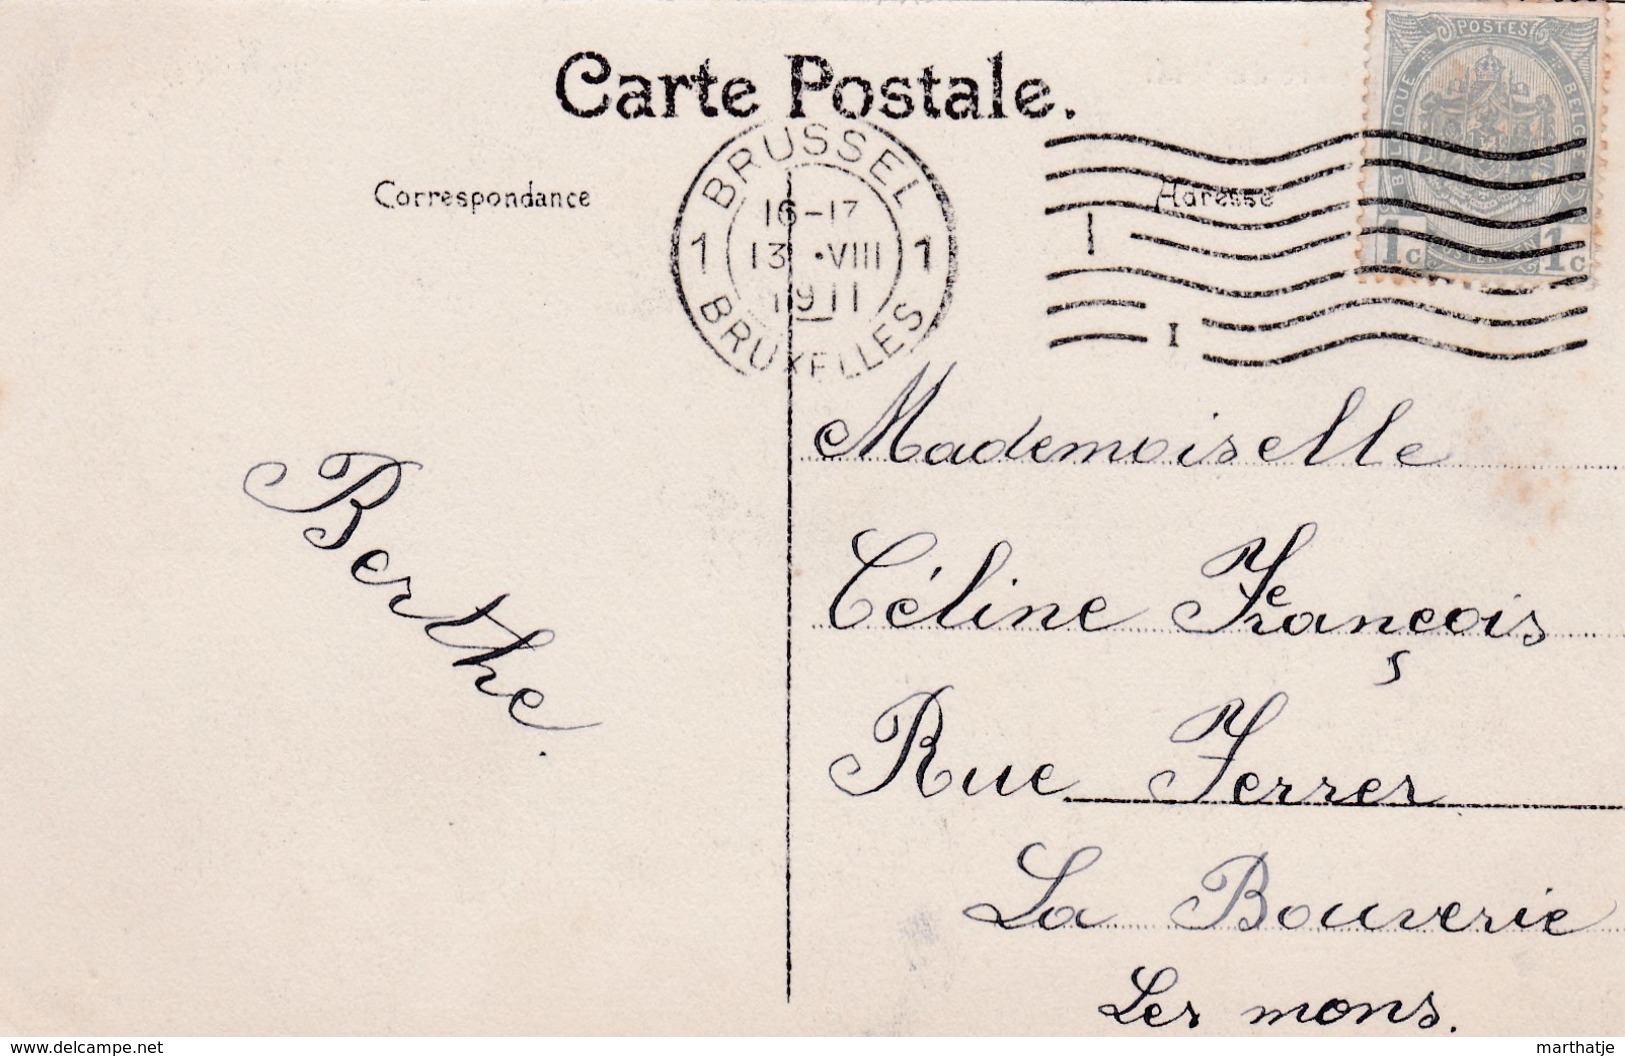 Carte Postale.
Correspondance
Adresse
BRUSSEL
16-17
1 13 .VIII 1
1911
BRUXELLES
I
I
POSTES
BELGIQUE
BELGIE
1c 1c
Mademoiselle
Céline François
Rue Ferrer
La Bouverie
Les mons.
Berthe.
www.delcampe.net
marthatje